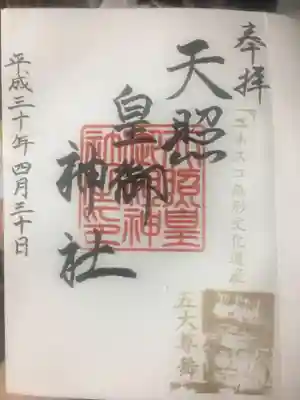 奉拝
「ユネスコ無形文化遺産
五大尊舞
天照
皇御
神社
平成三十年四月三十日